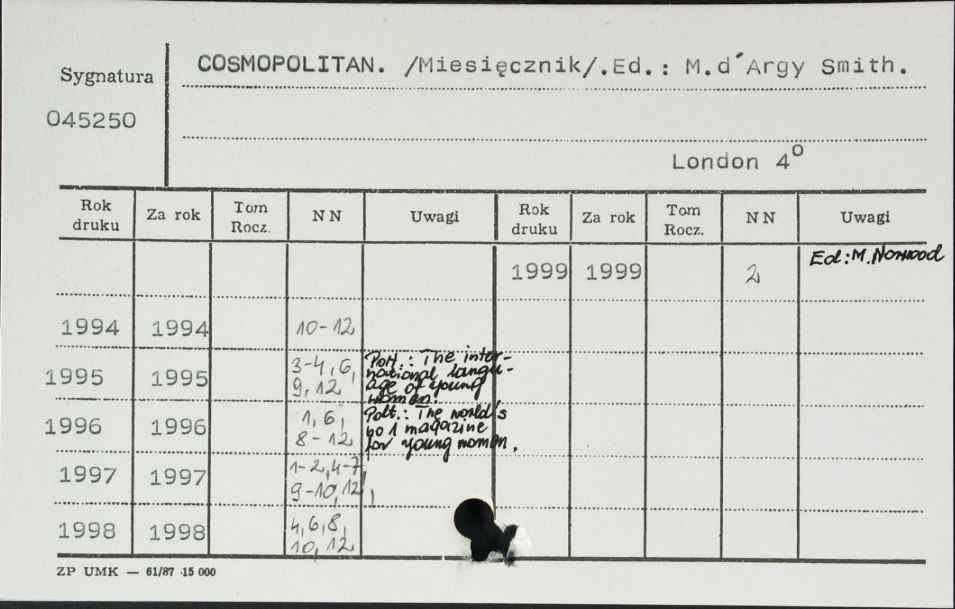 Sygnatura
045250
COSMOPOLITAN. /Miesięcznik/.Ed.: M.d´Argy Smith.
London 4º
Rok druku Za rok Tom Rocz. NN Uwagi Rok druku Za rok Tom Rocz. NN Uwagi
1999 1999 2 Ed: M. Norwood
1994 1994 10-12
1995 1995 3-4, 6, 9, 12 Podt.: The inter-
national langu-
age of young
women.
1996 1996 1, 6, 8-12 Podt.: The world's
no 1 magazine
for young women.
1997 1997 1-2, 4-7, 9-10, 12,
1998 1998 4, 6, 8, 10, 12
ZP UMK — 61/87 ·15 000